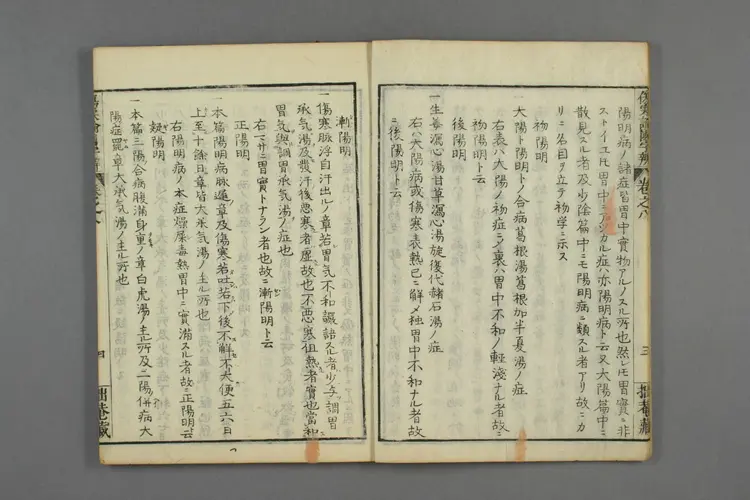 陽明病ノ諸症皆胃中ニ實物アルノスル所也然レモ胃實ニ非
ストイエㇳモ胃中ニアツカル症ハ亦陽明病ト云又太陽篇中ニ
散見スル者及少陰篇中ニモ陽明病ニ類スル者アリ故ニカ
リニ名目ヲ立テ初学ニ示ス
初陽明
一太陽ト陽明トノ合病葛根湯葛根加半夏湯ノ症
右表ハ太陽ノ初症ニ〆裏ハ胃中不和ノ輕淺ナル者故ニ
初陽明ト云
後陽明
一生姜瀉心湯甘草瀉心湯旋復代赭石湯ノ症
右ハ太陽病或傷寒表熱已ニ解〆独胃中不和ナル者故
ニ後陽明ト云
三
拙菴藏
漸陽明
一傷寒脉浮自汗出ルノ章若胃気不和讝語スル者少与調胃
承気湯及發汗後悪寒者虚故也不悪寒但熱者實也當和
胃気與調胃承気湯ノ症也
右ハマサニ胃實トナラン者也故ニ漸陽明ト云
正陽明
一本篇陽明病脉遲章及傷寒若吐若下後不解不大便五六日
上至十餘日章皆大承気湯ノ主ル所也
右陽明病ノ本症燥屎毒熱胃中ニ實満スル者故ニ正陽明云
疑陽明
一本篇三陽合病腹満身重ノ章白虎湯ノ主ル所及二陽併病太
陽症罷章大承気湯ノ主ル所也
四
拙菴藏